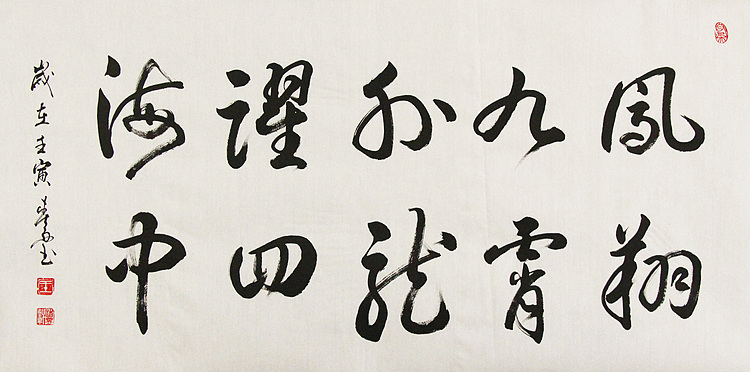 鳳翔
九霄
外龍
躍四
海中
歲在壬寅